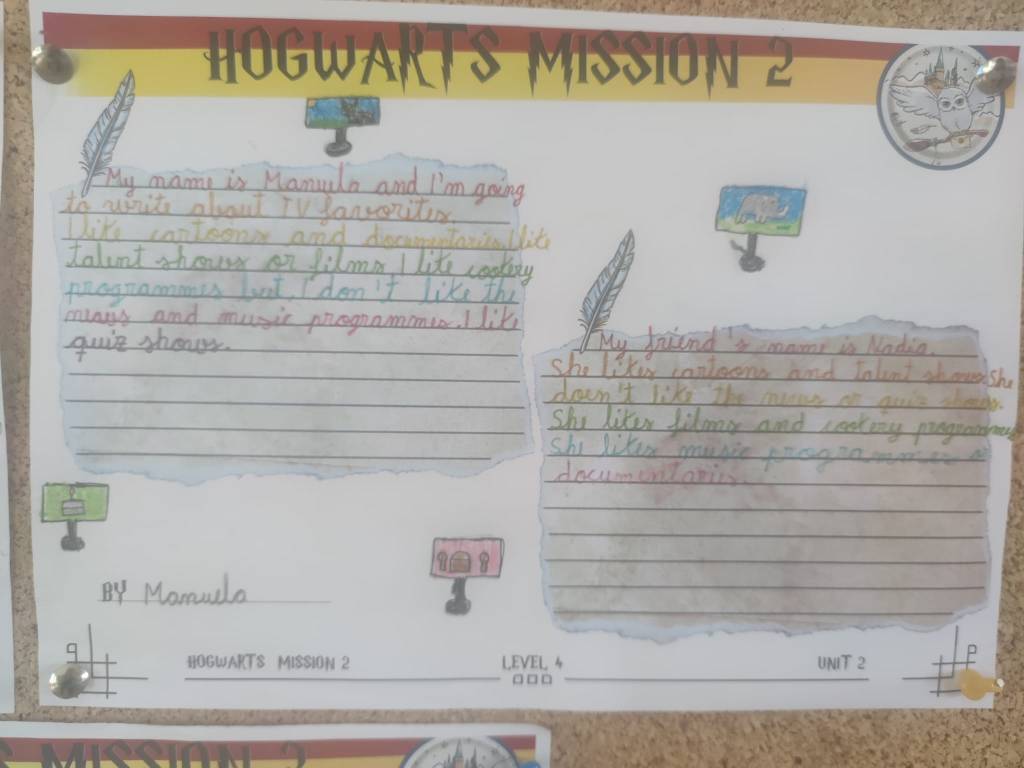 HOGWARTS MISSION 2
My name is Manuela and I'm going
to write about TV favorites.
I like cartoons and documentaries. I like
talent shows or films. I like cookery
programmes but I don't like the
news and music programmes. I like
quiz shows.
My friend's name is Nadia.
She likes cartoons and talent shows. She
doesn't like the news or quiz shows.
She likes films and cookery programmes
She likes music programmes
documentaries.
BY Manuela
HOGWARTS MISSION 2
LEVEL 4
UNIT 2
S MISSION 2